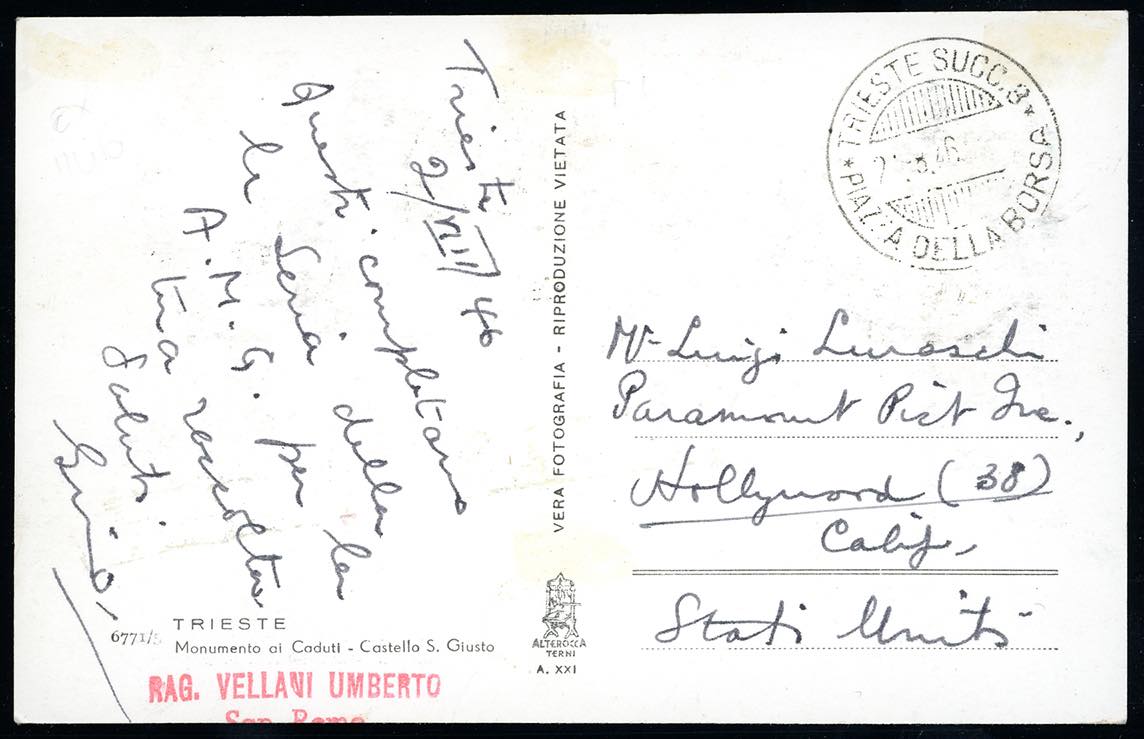 Trieste
2/VIII/46
Questi completano
la Seria della
A.M.G. per la
tua raccolta
Saluti
TRIESTE
6771/5 Monumento ai Caduti - Castello S. Giusto
RAG. VELLANI UMBERTO
San Remo
VERA FOTOGRAFIA - RIPRODUZIONE VIETATA
ALTEROCCA
TERNI
A. XXI
* TRIESTE SUCC. 3 *
PIAZZA DELLA BORSA
Mr Luigi Luraschi
Paramount Pict Inc.,
Hollywood (38)
Calif,
Stati Uniti